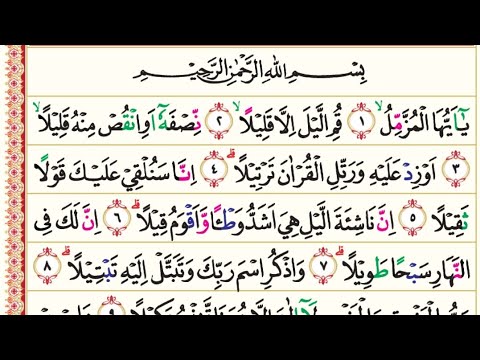 بِسْمِ اللهِ الرَّحْمٰنِ الرَّحِيْمِ
يٰۤاَيُّهَا الْمُزَّمِّلُۙ ١ قُمِ الَّيْلَ اِلَّا قَلِيْلًاۙ ٢ نِّصْفَهٗۤ اَوِ انْقُصْ مِنْهُ قَلِيْلًاۙ
٣ اَوْ زِدْ عَلَيْهِ وَرَتِّلِ الْقُرْاٰنَ تَرْتِيْلًاؕ ٤ اِنَّا سَنُلْقِيْ عَلَيْكَ قَوْلًا
ثَقِيْلًا ٥ اِنَّ نَاشِئَةَ الَّيْلِ هِيَ اَشَدُّ وَطْـًٔا وَّاَقْوَمُ قِيْلًاؕ ٦ اِنَّ لَكَ فِى
النَّهَارِ سَبْحًا طَوِيْلًاؕ ٧ وَاذْكُرِ اسْمَ رَبِّكَ وَتَبَتَّلْ اِلَيْهِ تَبْتِيْلًاؕ ٨